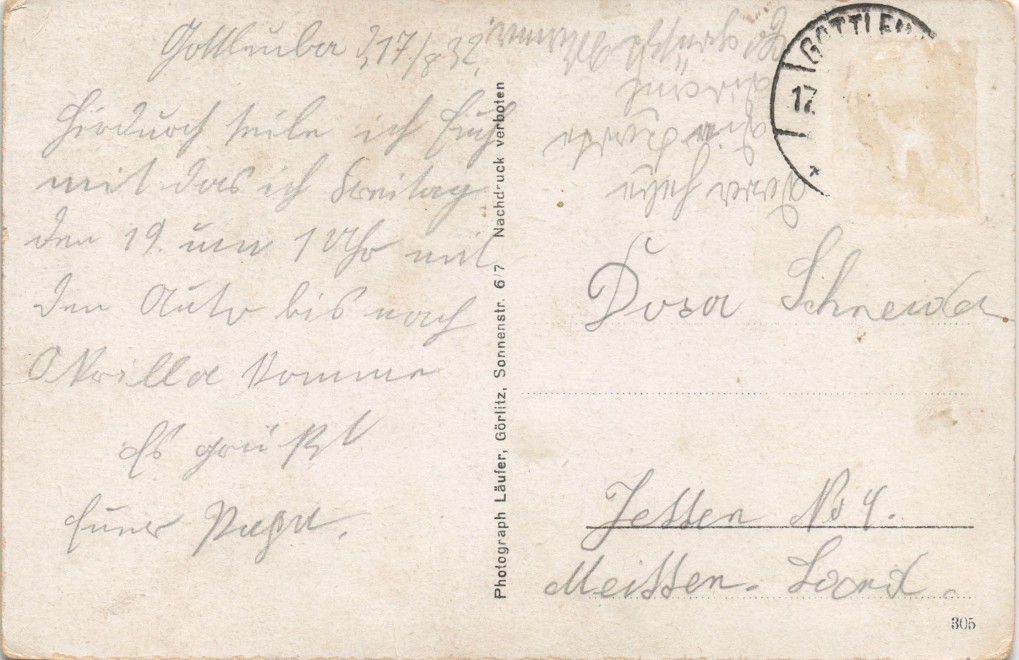 Gottleuba d. 17./8 32.
Hirduch teile ich Euch
mit das ich Freitag
den 19. um 1 Uhr mit
den Auto bis nach
Okrilla komme
Es grüßt
Euer Papa.
Photograph Läufer, Görlitz, Sonnenstr. 6/7 Nachdruck verboten
GOTTLEU
17.
Dora Schneider
Jessen No 4.
Meissen. Land.
305